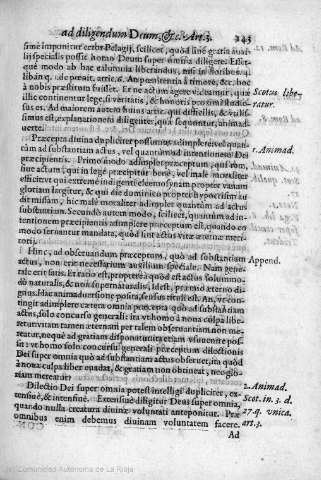 ad diligendum Deum, &c. Art. 3. 243
simè imponitur error Pelagij, scilicet, quòd sinè gratia auxi-
lij specialis possit homo Deum super omnia diligere: Esset-
què modo ab hac calumnia liberandus, nisi in
de præcit. artic. 6. An pœnitentia à timore, &c. hoc
à nobis præstitum fuisset. Et ne actum agere videamur, quæ
illic continentur lege, si veritatis, & honoris proximi
tus es. Ad maiorem autem huius artic. qui difficilis, &
simus est, explanationem diligenter, quæ sequuntur, animad-
uerte.
Scotus libe-
ratur.
Præcepta diuina dupliciter possumus adimplere: vel quan-
tùm ad substantiam actus, vel quantùm ad intentionem Dei
præcipientis. Primo modo adimpler præceptum
siue actum, qui in lege præcipitur bene, vel malè moraliter
efficit: vt qui extremè indigenti eleemosynam propter vanam
gloriam largitur, & qui die dominico propter hypocrisim au-
dit missam, hic malè moraliter adimpler quantùm ad actus
substantiam. Secundo autem modo, scilicet, quantùm ad in-
tentionem præcipientis adimplere præceptum est, quando eo
modo seruantur mandata, quòd sint actus vitæ æternæ meri-
torij.
1. Animad.
Hinc, ad obseruandum præceptum, quòd ad substantiam
actus, non erit necessarium auxilium speciale. Nam gene-
rale erit satis. Et ratio est, propterea quòd est actus solummo-
dò naturalis, & non supernaturalis, idest, præmio æterno di-
gnus. Hac animaduersione posita, sensus tituli est. An, vt con-
tingit adimplere cætera omnia præcepta quòd ad substantiam
actus, solo concursu generali: ita vt homo à noua culpa libe-
retur: vitam tamen æternam per talem obseruantiam non me-
retur, neque ad gratiam disponatur: etiam vsuuenire pos-
sit: vt homo solo concursu generali præceptum dilectionis
Dei super omnia quò ad substantiam actus obseruet, ita quòd
à noua culpa liber euadat, & gratiam non obtineat, neq; glo-
riam mereatur?
Append.
Dilectio Dei super omnia potest intelligi dupliciter, ex-
tensiuè, & intensiuè. Extensiuè diligitur Deus super omnia,
quando nulla creatura diuinæ voluntati anteponitur. Præ
omnibus enim debemus diuinam voluntatem facere.
2. Animad.
Scot. in 3. d.
27. q. vnica.
art. 3.
Ad
Comunidad Autónoma de La Rioja